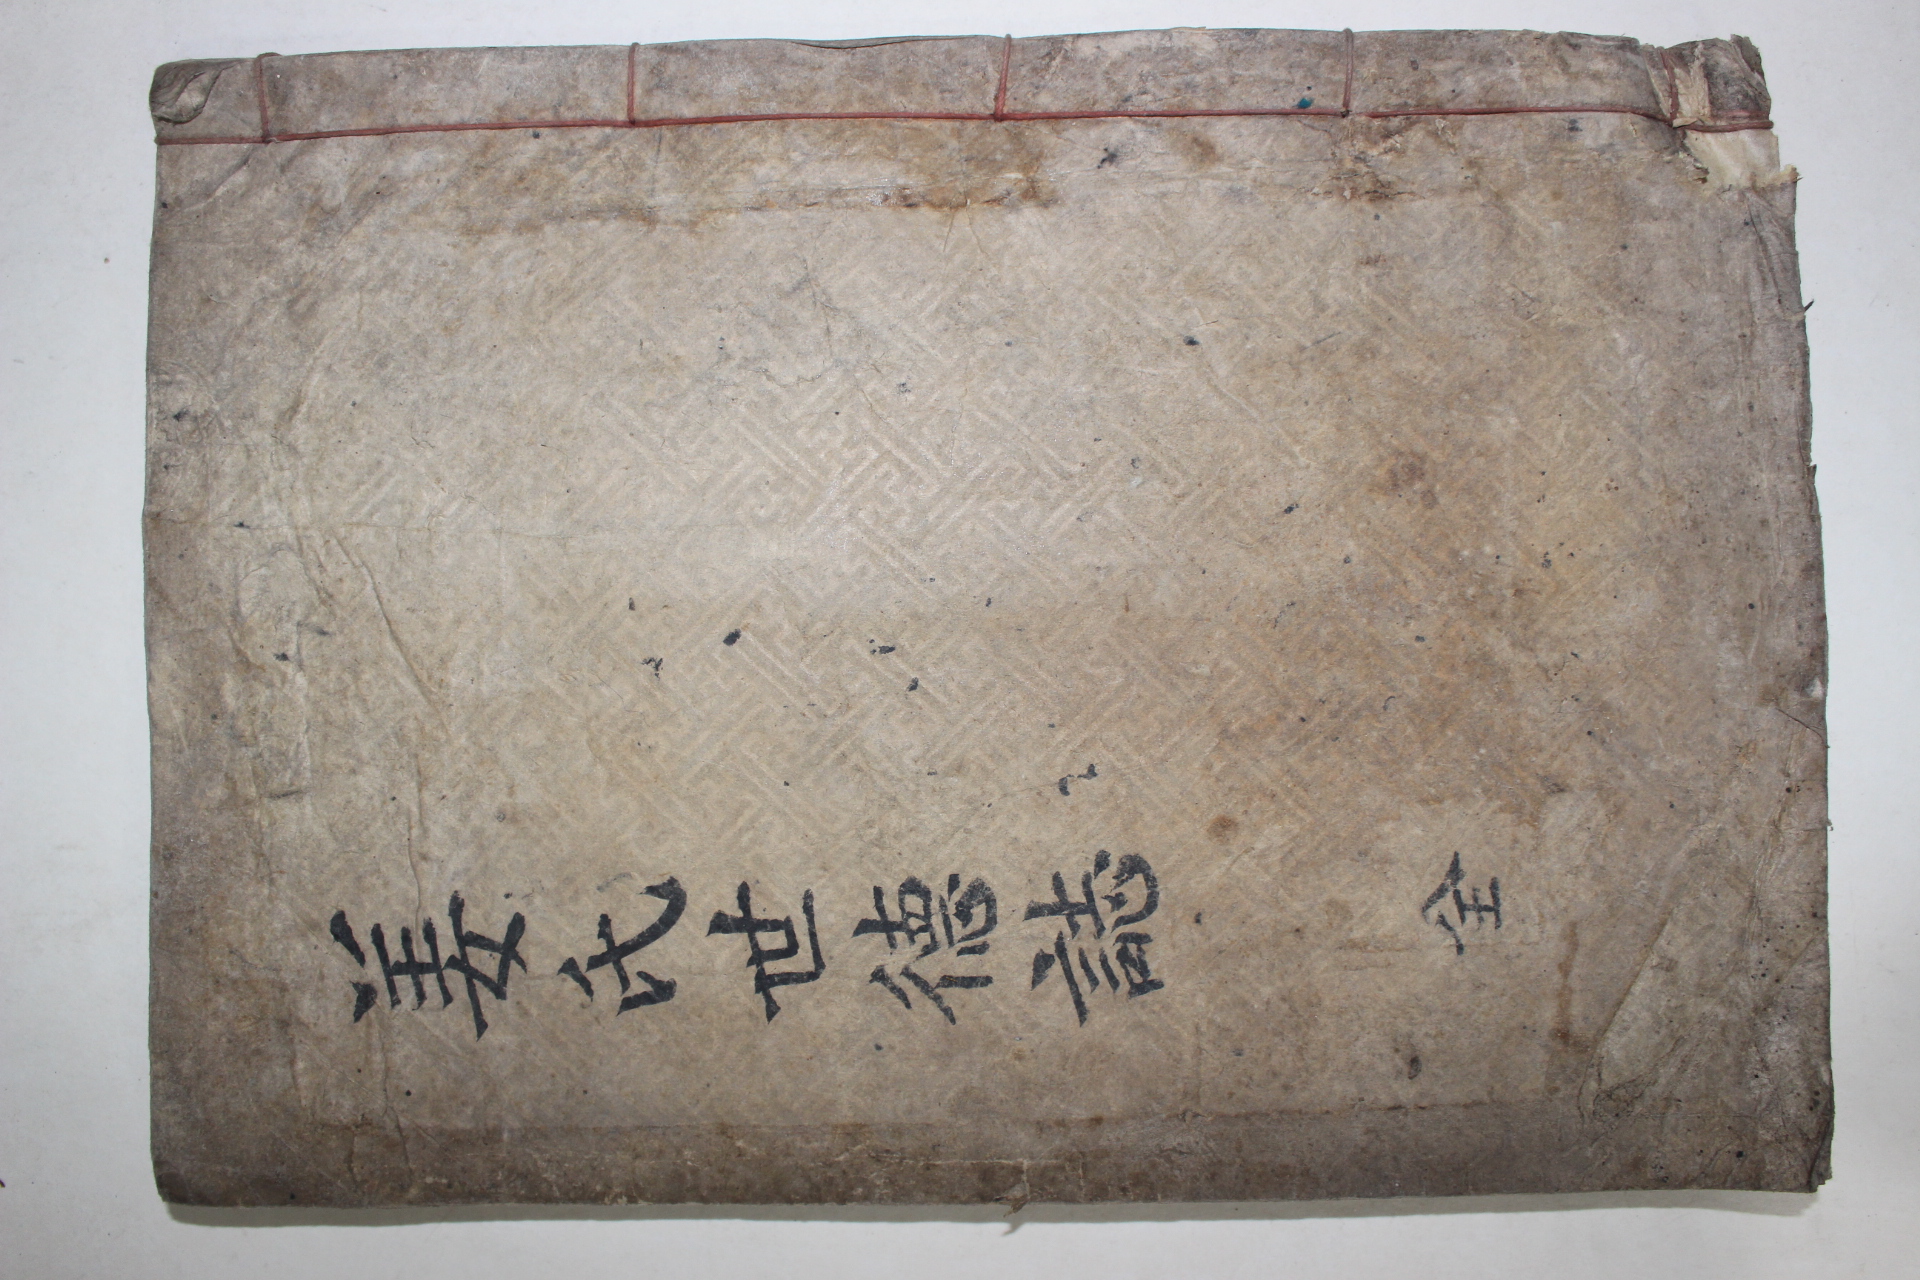 姜氏世德誌 全